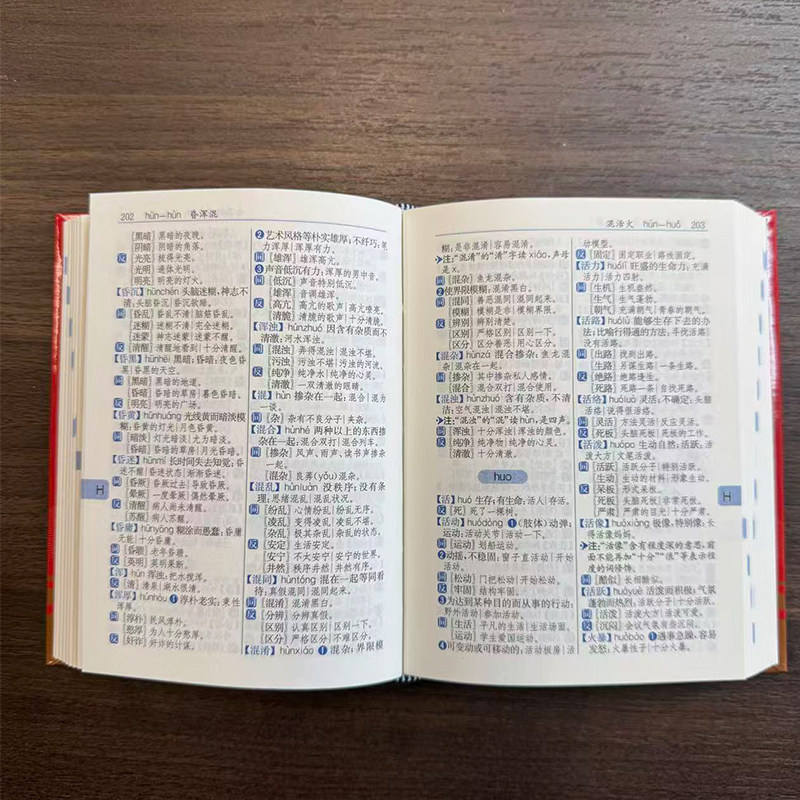 202 hūn—hùn 昏浑混
[黑暗] 黑暗的夜晚。
[阴暗] 阴暗的角落。
反 [光亮] 擦得光亮。
[光明] 通体光明。
[明亮] 明亮的灯火。
【昏沉】hūnchén 头脑迷糊,神志不
清:头脑昏沉。
同 [昏乱] 昏乱不清|脑筋昏乱。
[迷糊] 迷糊不清|完全迷糊。
[迷蒙] 神志迷蒙|迷蒙不醒。
反 [清醒] 清醒地看到|十分清醒。
【昏黑】hūnhēi 黑暗;昏暗:夜色昏
黑|昏黑的天空。
同 [黑暗] 黑暗的地道。
[昏暗] 昏暗的草房|暮色昏暗。
反 [明亮] 明亮的广场。
【昏黄】hūnhuáng 光线黄而暗淡模
糊:昏黄的灯光|月色昏黄。
同 [暗淡] 灯光暗淡|尤为暗淡。
[昏暗] 昏暗的草房|月光昏暗。
【昏迷】hūnmí 长时间失去知觉:昏
迷不醒|昏迷状态|渐渐昏迷。
同 [昏厥] 昏厥过去|导致昏厥。
[晕厥] 一度晕厥|偶然晕厥。
反 [清醒] 病人尚未清醒。
[苏醒] 病人苏醒。
【昏庸】hūnyōng 糊涂而愚蠢:昏庸
无能|十分昏庸。
同 [昏聩] 老年昏聩。
反 [英明] 英明果断。
【浑】hún 浑浊:把水搅浑。
反 [清] 清泉|湖水很清。
【浑厚】húnhòu ❶淳朴老实:秉性
浑厚。
同 [淳朴] 民风淳朴。
[憨厚] 为人十分憨厚。
反 [奸诈] 奸诈的计谋。
❷艺术风格等朴实雄厚;不纤巧:笔
力浑厚|浑厚有力。
同 [雄浑] 雄浑高亢。
❸声音低沉有力:浑厚的男中音。
同 [低沉] 声音特别低沉。
[雄浑] 音调雄浑。
反 [高亢] 高亢的歌声|高亢嘹亮。
[清脆] 清脆的歌声|十分清脆。
【浑浊】húnzhuó 因含有杂质而不
清澈:河水浑浊。
同 [混浊] 弄得混浊|混浊不堪。
[污浊] 污浊不堪|污浊的河流。
反 [纯净] 纯净水|纯净的心灵。
[清澈] 一双清澈的眼睛。
【混】hùn 掺杂在一起;混合:混为
一谈。
同 [杂] 杂有不良分子|夹杂。
【混合】hùnhé 两种以上的东西掺
杂在一起:混合双打|混合列车。
同 [掺杂] 风声、雨声、读书声掺杂
在一起。
[混杂] 良莠(yǒu)混杂。
【混乱】hùnluàn 没秩序;没有条
理:思绪混乱|混乱状况。
同 [纷乱] 心情纷乱|纷乱无序。
[凌乱] 变得凌乱|凌乱不堪。
[杂乱] 极其杂乱|杂乱的状态。
反 [安定] 生活安定。
[安宁] 不大安宁|安宁的世界。
[井然] 秩序井然|井然有序。
【混同】hùntóng 混在一起等同看
待:真假混同|混同起来。
同 [混淆] 混淆黑白。
反 [分辨] 分辨真假。
[区别] 认真区别|区别一下。
[区分] 严格区分|不难区分。
【混淆】hùnxiáo ❶混杂;界限模
H
混活火 hùn—huǒ 203
糊:是非混淆|容易混淆。
➤注:“混淆”的“淆”字读xiáo,声母
是x。
同 [混杂] 鱼龙混杂。
❷使界限模糊:混淆黑白。
同 [混同] 善恶混同|混同起来。
[模糊] 模糊是非|模糊界限。
反 [辨别] 辨别清楚。
[区别] 严格区别|区别一下。
[区分] 区分善恶|用心区分。
【混杂】hùnzá 混合掺杂:鱼龙混
杂|混杂在一起。
同 [掺杂] 其中掺杂私人感情。
[混合] 混合双打|混合使用。
【混浊】hùnzhuó 含有杂质,不清
洁:空气混浊|混浊不堪。
➤注:“混浊”的“混”读hùn,是四声。
同 [浑浊] 十分浑浊|浑浊的颜色。
反 [纯净] 纯净物|纯净的心灵。
[清澈] 十分清澈
huo
【活】huó 生存;有生命:活人|存活。
反 [死] 死了一棵树。
【活动】huódòng ❶(肢体)动弹;
运动:活动关节|活动一下。
同 [运动] 划船运动。
❷动摇;不稳固:窗子直活动|开始
活动。
同 [松动] 门把松动|开始松动。
反 [牢固] 结构牢固。
❸为达到某种目的而从事的行动:
野外活动|参加活动。
同 [生活] 平凡的生活|生活场面。
[运动] 学生爱国运动。
❹可变动或可移动的:活动板房|活
动模型。
反 [固定] 固定职业|路线固定。
【活力】huólì 旺盛的生命力:充满
活力|活力四射。
同 [生机] 生机盎然。
[生气] 生气蓬勃。
[朝气] 充满朝气|青春的朝气。
【活路】huólù 能够生存下去的办
法;比喻行得通的方法:寻找活路|
没有活路。
同 [出路] 找到出路。
[生路] 另谋生路|一条生路。
反 [绝路] 绝路逢生。
[死路] 死路一条|自找死路。
【活络】huóluò 灵活;不确定:头脑
活络|说得很活络。
同 [灵活] 方法灵活|反应灵活。
反 [死板] 头脑死板|死板的工作。
【活泼】huópo 生动自然;活跃:活
泼大方|文笔活泼。
同 [活跃] 活跃分子|特别活跃。
[生动] 生动的材料|形象生动。
反 [呆板] 形式呆板。
[死板] 头脑死板|非常死板。
[严肃] 严肃的目光|十分严肃。
【活像】huóxiàng 极像,特别像:长
得活像妈妈。
➤注:“活像”含有程度深的意思,前
面不能再加“十分”“很”等表示程
度的词修饰。
同 [酷似] 长相酷似。
【活跃】huóyuè 活泼而积极;气氛
蓬勃而热烈:活跃分子|十分活跃。
同 [活泼] 活泼大方|活泼可爱。
反 [沉闷] 会议气氛有些沉闷。
【火暴】huǒbào ❶遇事急躁,容易
发怒:火暴性子|十分火暴。
H